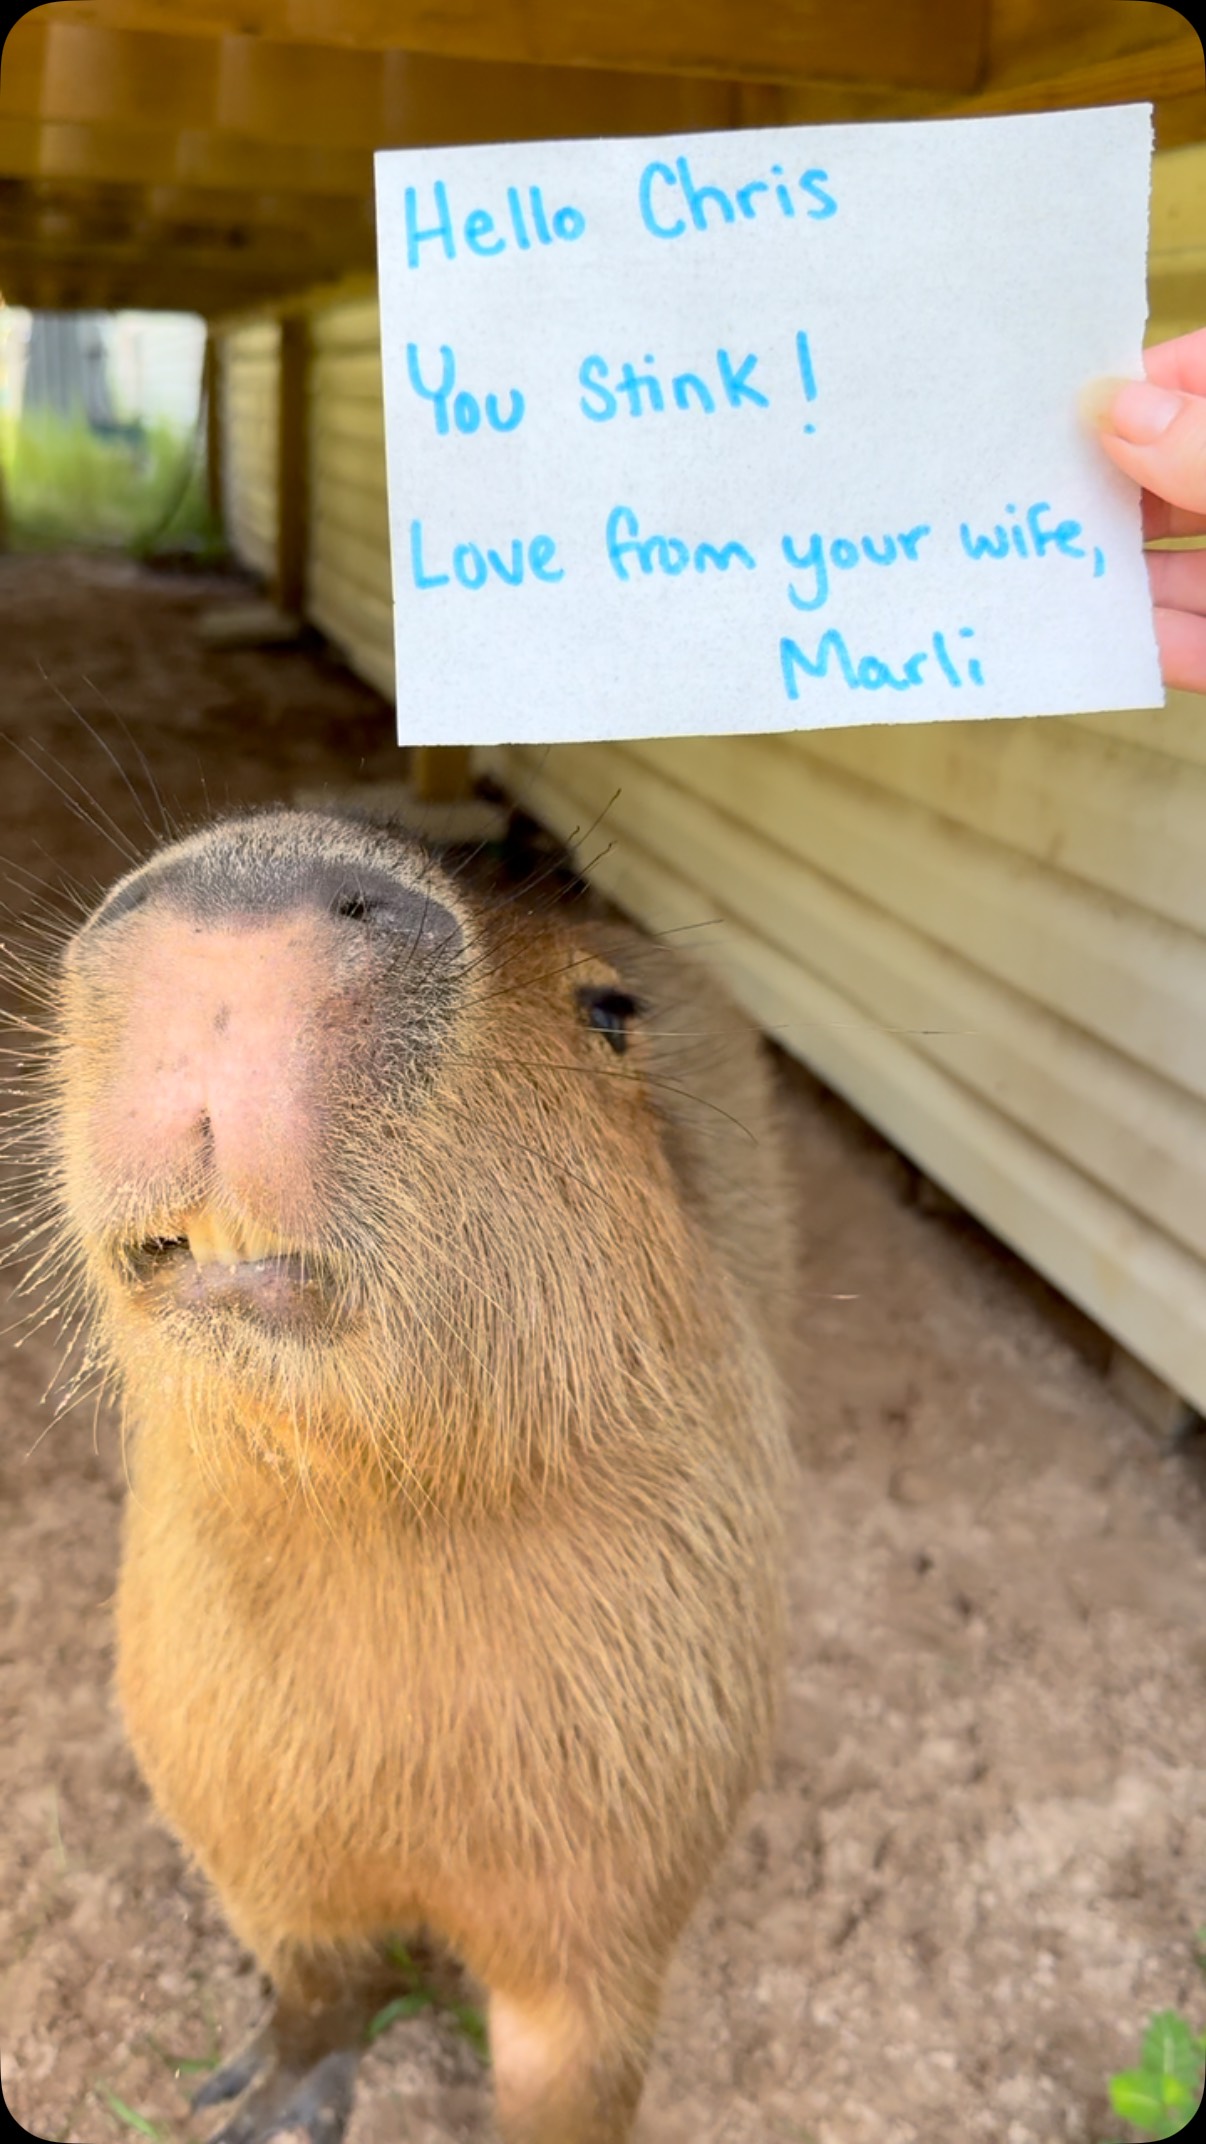 Hello Chris
You Stink!
Love from your wife,
Marli